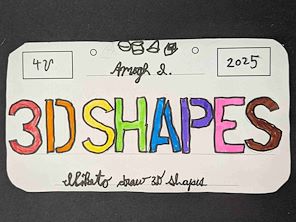 4V
2025
Amogh I.
3D SHAPES
draw 3D shapes